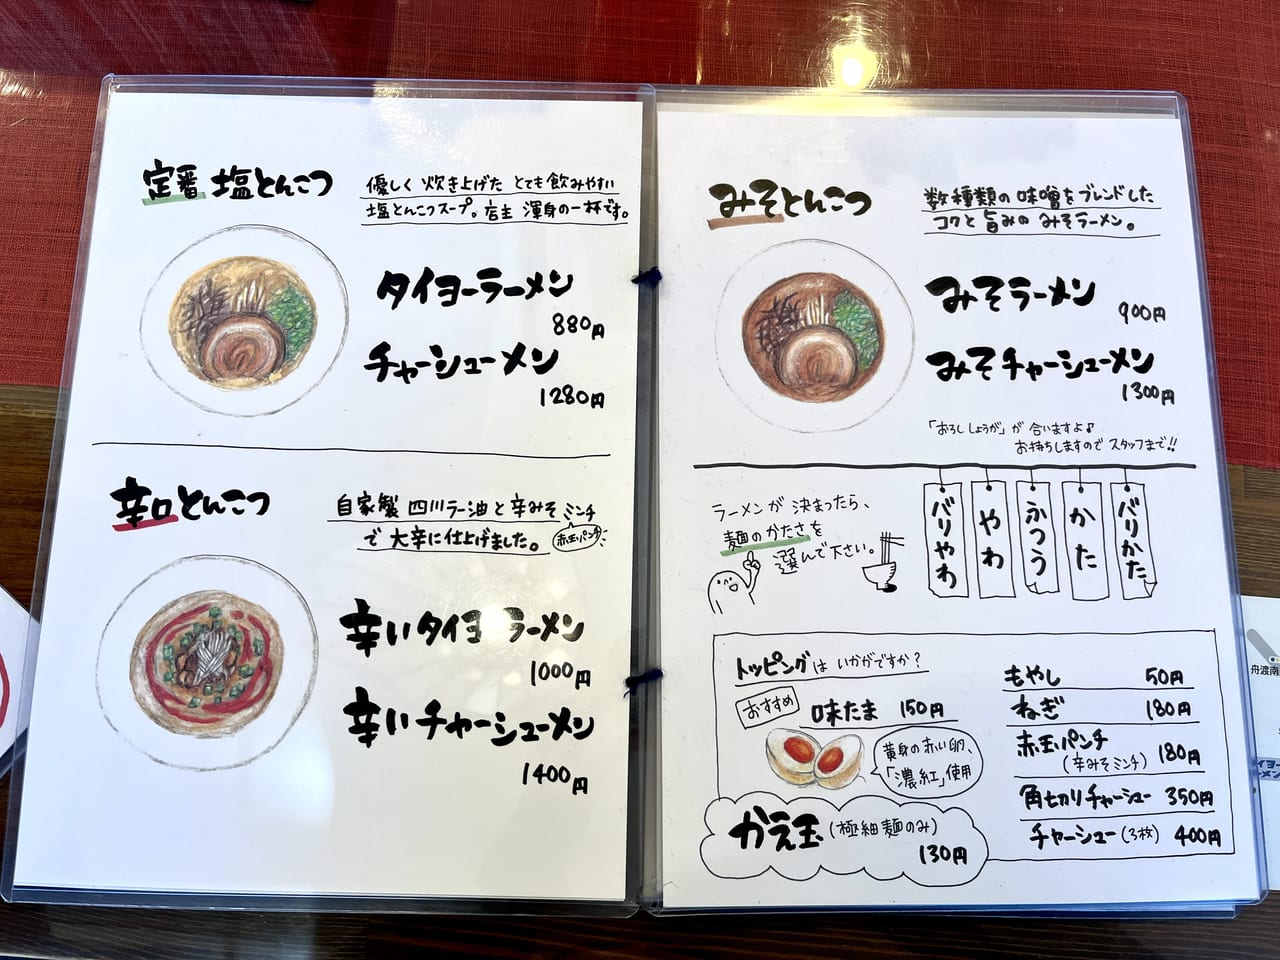 定番 塩とんこつ
優しく 炊き上げた とても飲みやすい
塩とんこつスープ。店主 渾身の一杯です。
タイヨーラーメン
880円
チャーシューメン
1280円
辛口とんこつ
自家製 四川ラー油と辛みそミンチ
で 大辛に仕上げました。
赤玉パンチ
辛いタイヨーラーメン
1000円
辛いチャーシューメン
1400円
みそとんこつ
数種類の味噌をブレンドした
コクと旨みの みそラーメン。
みそラーメン
900円
みそチャーシューメン
1300円
「おろししょうが」が 合いますよ♪
お持ちしますので スタッフまで!!
ラーメンが 決まったら、
麺のかたさを
選んで下さい。
バリやわ
やわ
ふつう
かた
バリかた
トッピングは いかがですか?
おすすめ
味たま 150円
黄身の赤い卵、
「濃紅」使用
かえ玉(極細麺のみ)
130円
もやし 50円
ねぎ 180円
赤玉パンチ
(辛みそミンチ) 180円
角切りチャーシュー 350円
チャーシュー(3枚) 400円
舟渡南